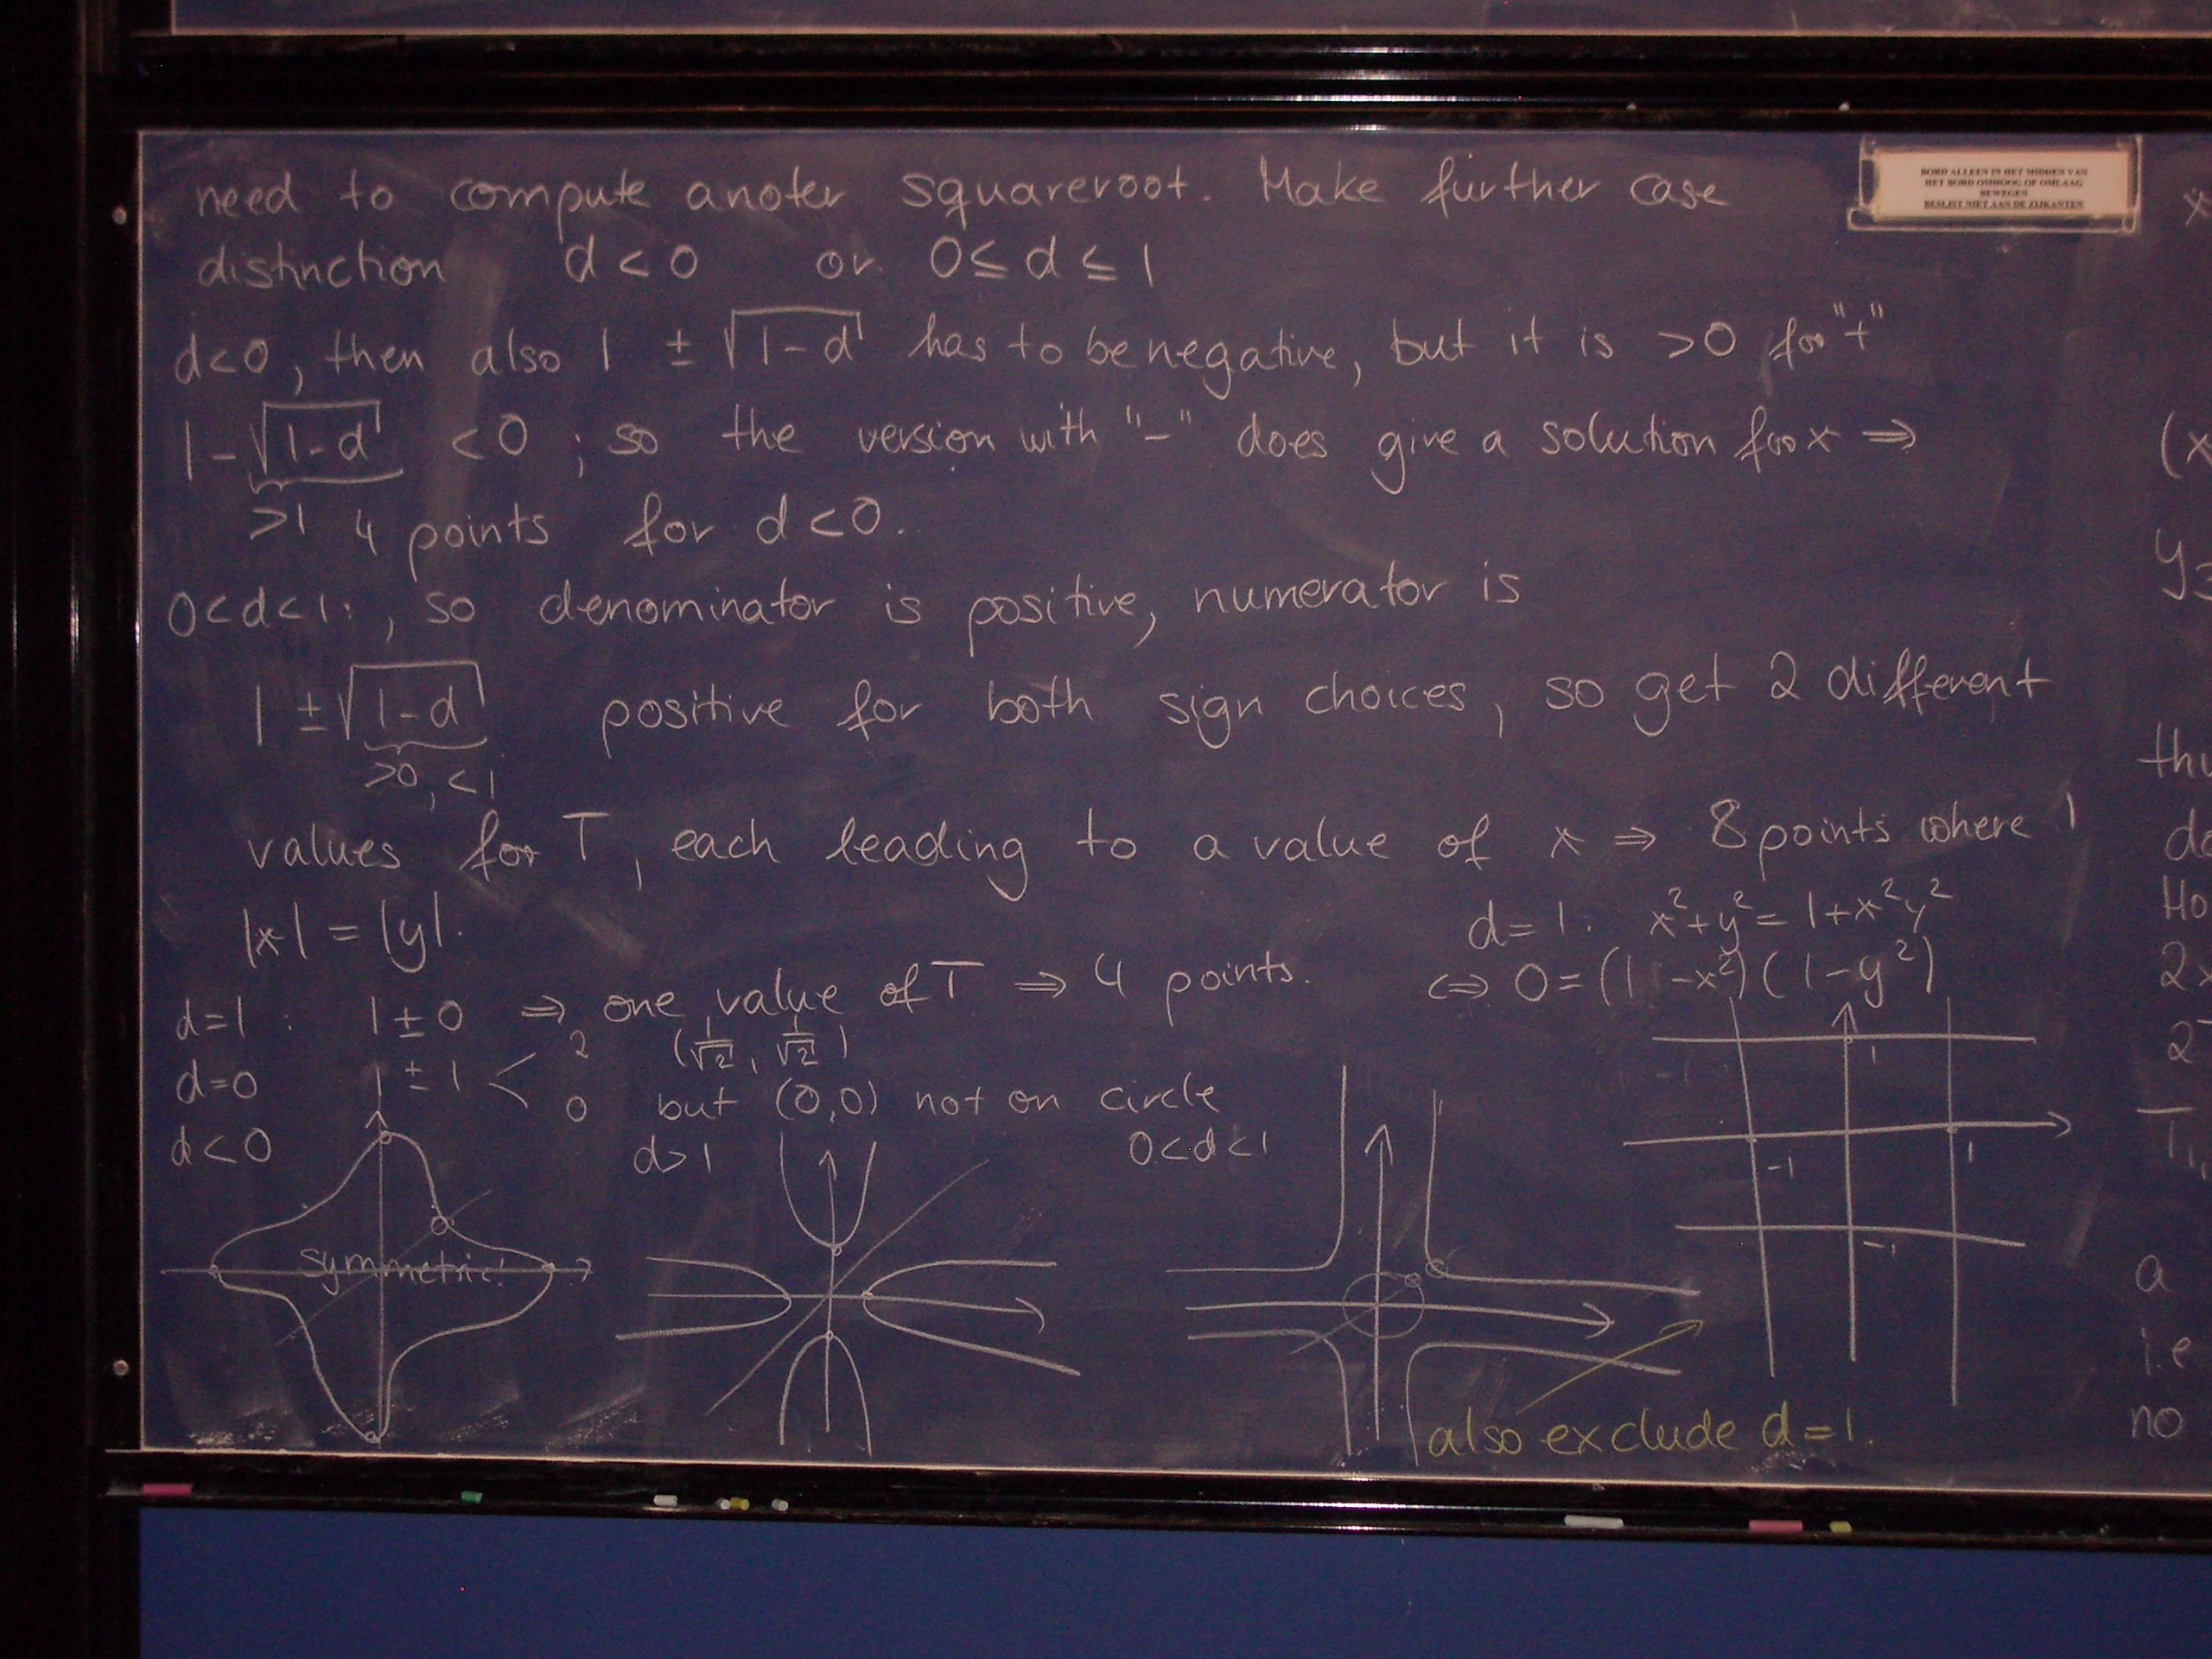 need to compute anoter squareroot. Make further case
BORD ALLEEN IN HET MIDDEN VAN
HET BORD OMHOOG OF OMLAAG
BEWEGEN
BESLIST NIET AAN DE ZIJKANTEN
distinction d<0 or 0≤d≤1
d<0, then also 1 ± √(1-d) has to be negative, but it is >0 for "+"
1-√(1-d) <0 ; so the version with "-" does give a solution for x ⇒
>1 4 points for d<0.
0<d<1: , so denominator is positive, numerator is
1 ± √(1-d) positive for both sign choices, so get 2 different
>0, <1
values for T, each leading to a value of x ⇒ 8 points where
|x| = |y|.
d=1: x²+y²=1+x²y²
⇔ 0=(1-x²)(1-y²)
d=1: 1±0 ⇒ one value of T ⇒ 4 points.
d=0 1±1 < 2 (1/√2, 1/√2)
0 but (0,0) not on circle
d<0
symmetric!
d>1
0<d<1
1
-1
1
-1
also exclude d=1.
(x
y=
thu
do
Ho
2x
2
a
i.e
no